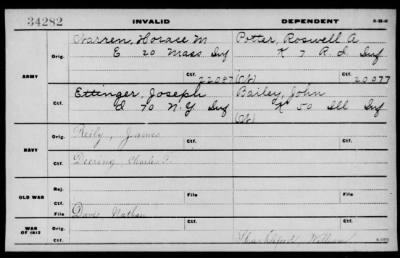 34282 INVALID DEPENDENT
ARMY
Orig. Warren, Horace M Potter, Roswell A
E 20 Mass Inf K 7 R.I. Inf
Ctf. 22087 Ctf. 20077
Ctf. Ettinger, Joseph Bailey, John
70 N.Y Inf K 50 Ill Inf
NAVY
Orig. Reily, James Ctf. Orig. Ctf.
Ctf. Deering, Charles
OLD WAR
Rej. File Ctf. File
File Davis Nathan
WAR OF 1812
Ctf. Ctf.